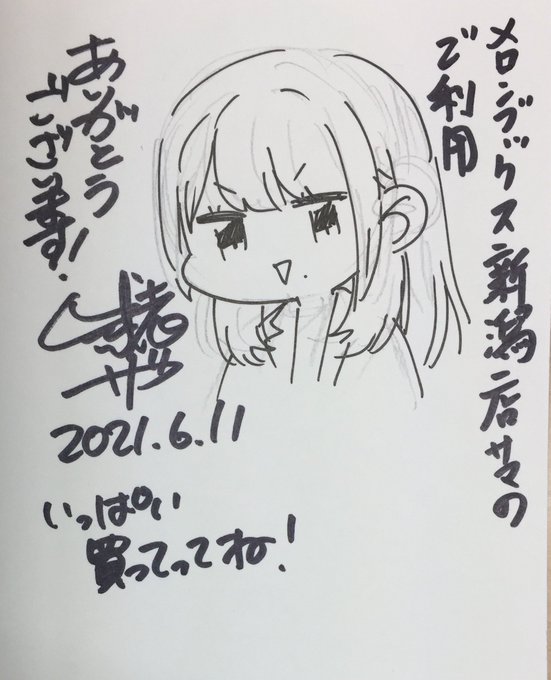 メロンブックス新潟店サマの
ご利用
ありがとう
ございます!
2021.6.11
いっぱい
買ってってね!